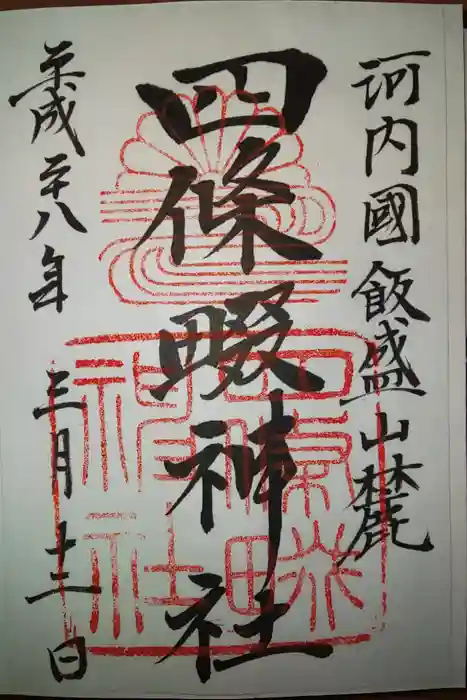 河内國飯盛山麓
四條畷神社
平成二十八年 三月十二日
四條畷
神社